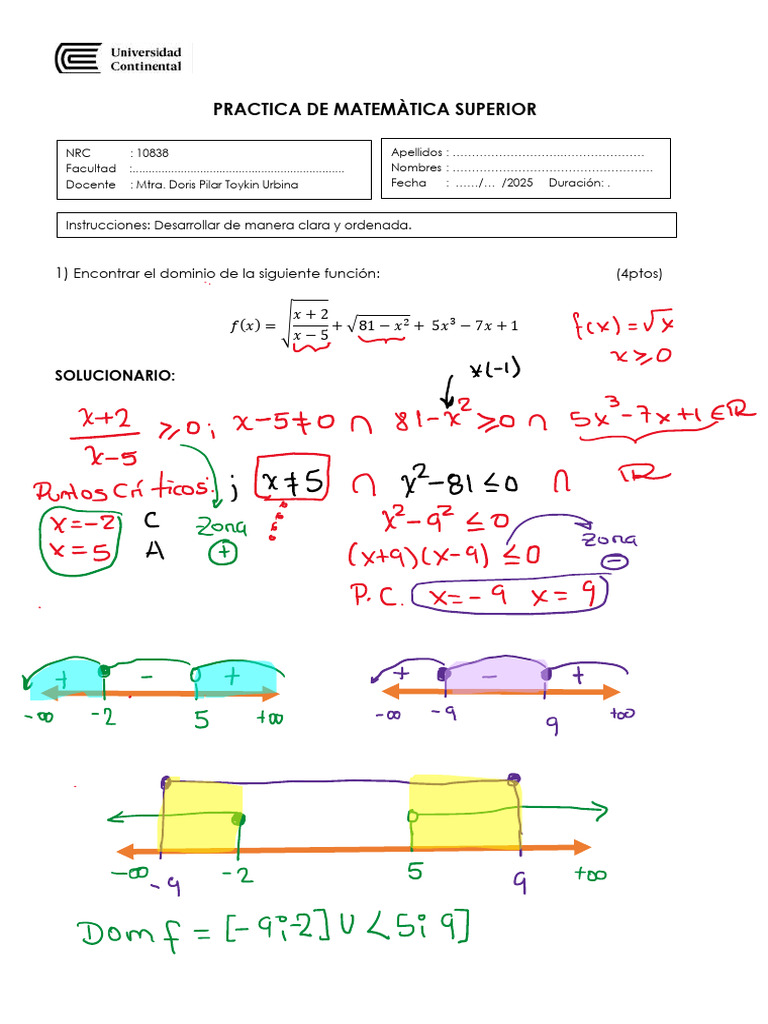 Universidad
Continental
PRACTICA DE MATEMÀTICA SUPERIOR
NRC : 10838
Facultad :.................................................................
Docente : Mtra. Doris Pilar Toykin Urbina
Apellidos : ................................................
Nombres : ..................................................
Fecha : ....../... /2025 Duración: .
Instrucciones: Desarrollar de manera clara y ordenada.
1) Encontrar el dominio de la siguiente función: (4ptos)
f(x) = √((x + 2)/(x − 5)) + √(81 − x²) + 5x³ − 7x + 1
f(x) = √x
x ≥ 0
SOLUCIONARIO:
*(-1)
(x+2)/(x-5) ≥ 0 ; x-5≠0 ∩ 81-x² ≥ 0 ∩ 5x³-7x+1 ∈ ℝ
Puntos Críticos: ; x ≠ 5 ∩ x²-81 ≤ 0 ∩ ℝ
x=-2 C Zona x²-9² ≤ 0
x=5 A + (x+9)(x-9) ≤ 0 Zona -
P.C. x=-9 x=9
+ - + + - +
-∞ -2 5 +∞ -∞ -9 9 +∞
-∞ -9 -2 5 9 +∞
Dom f = [-9;-2] U <5; 9]